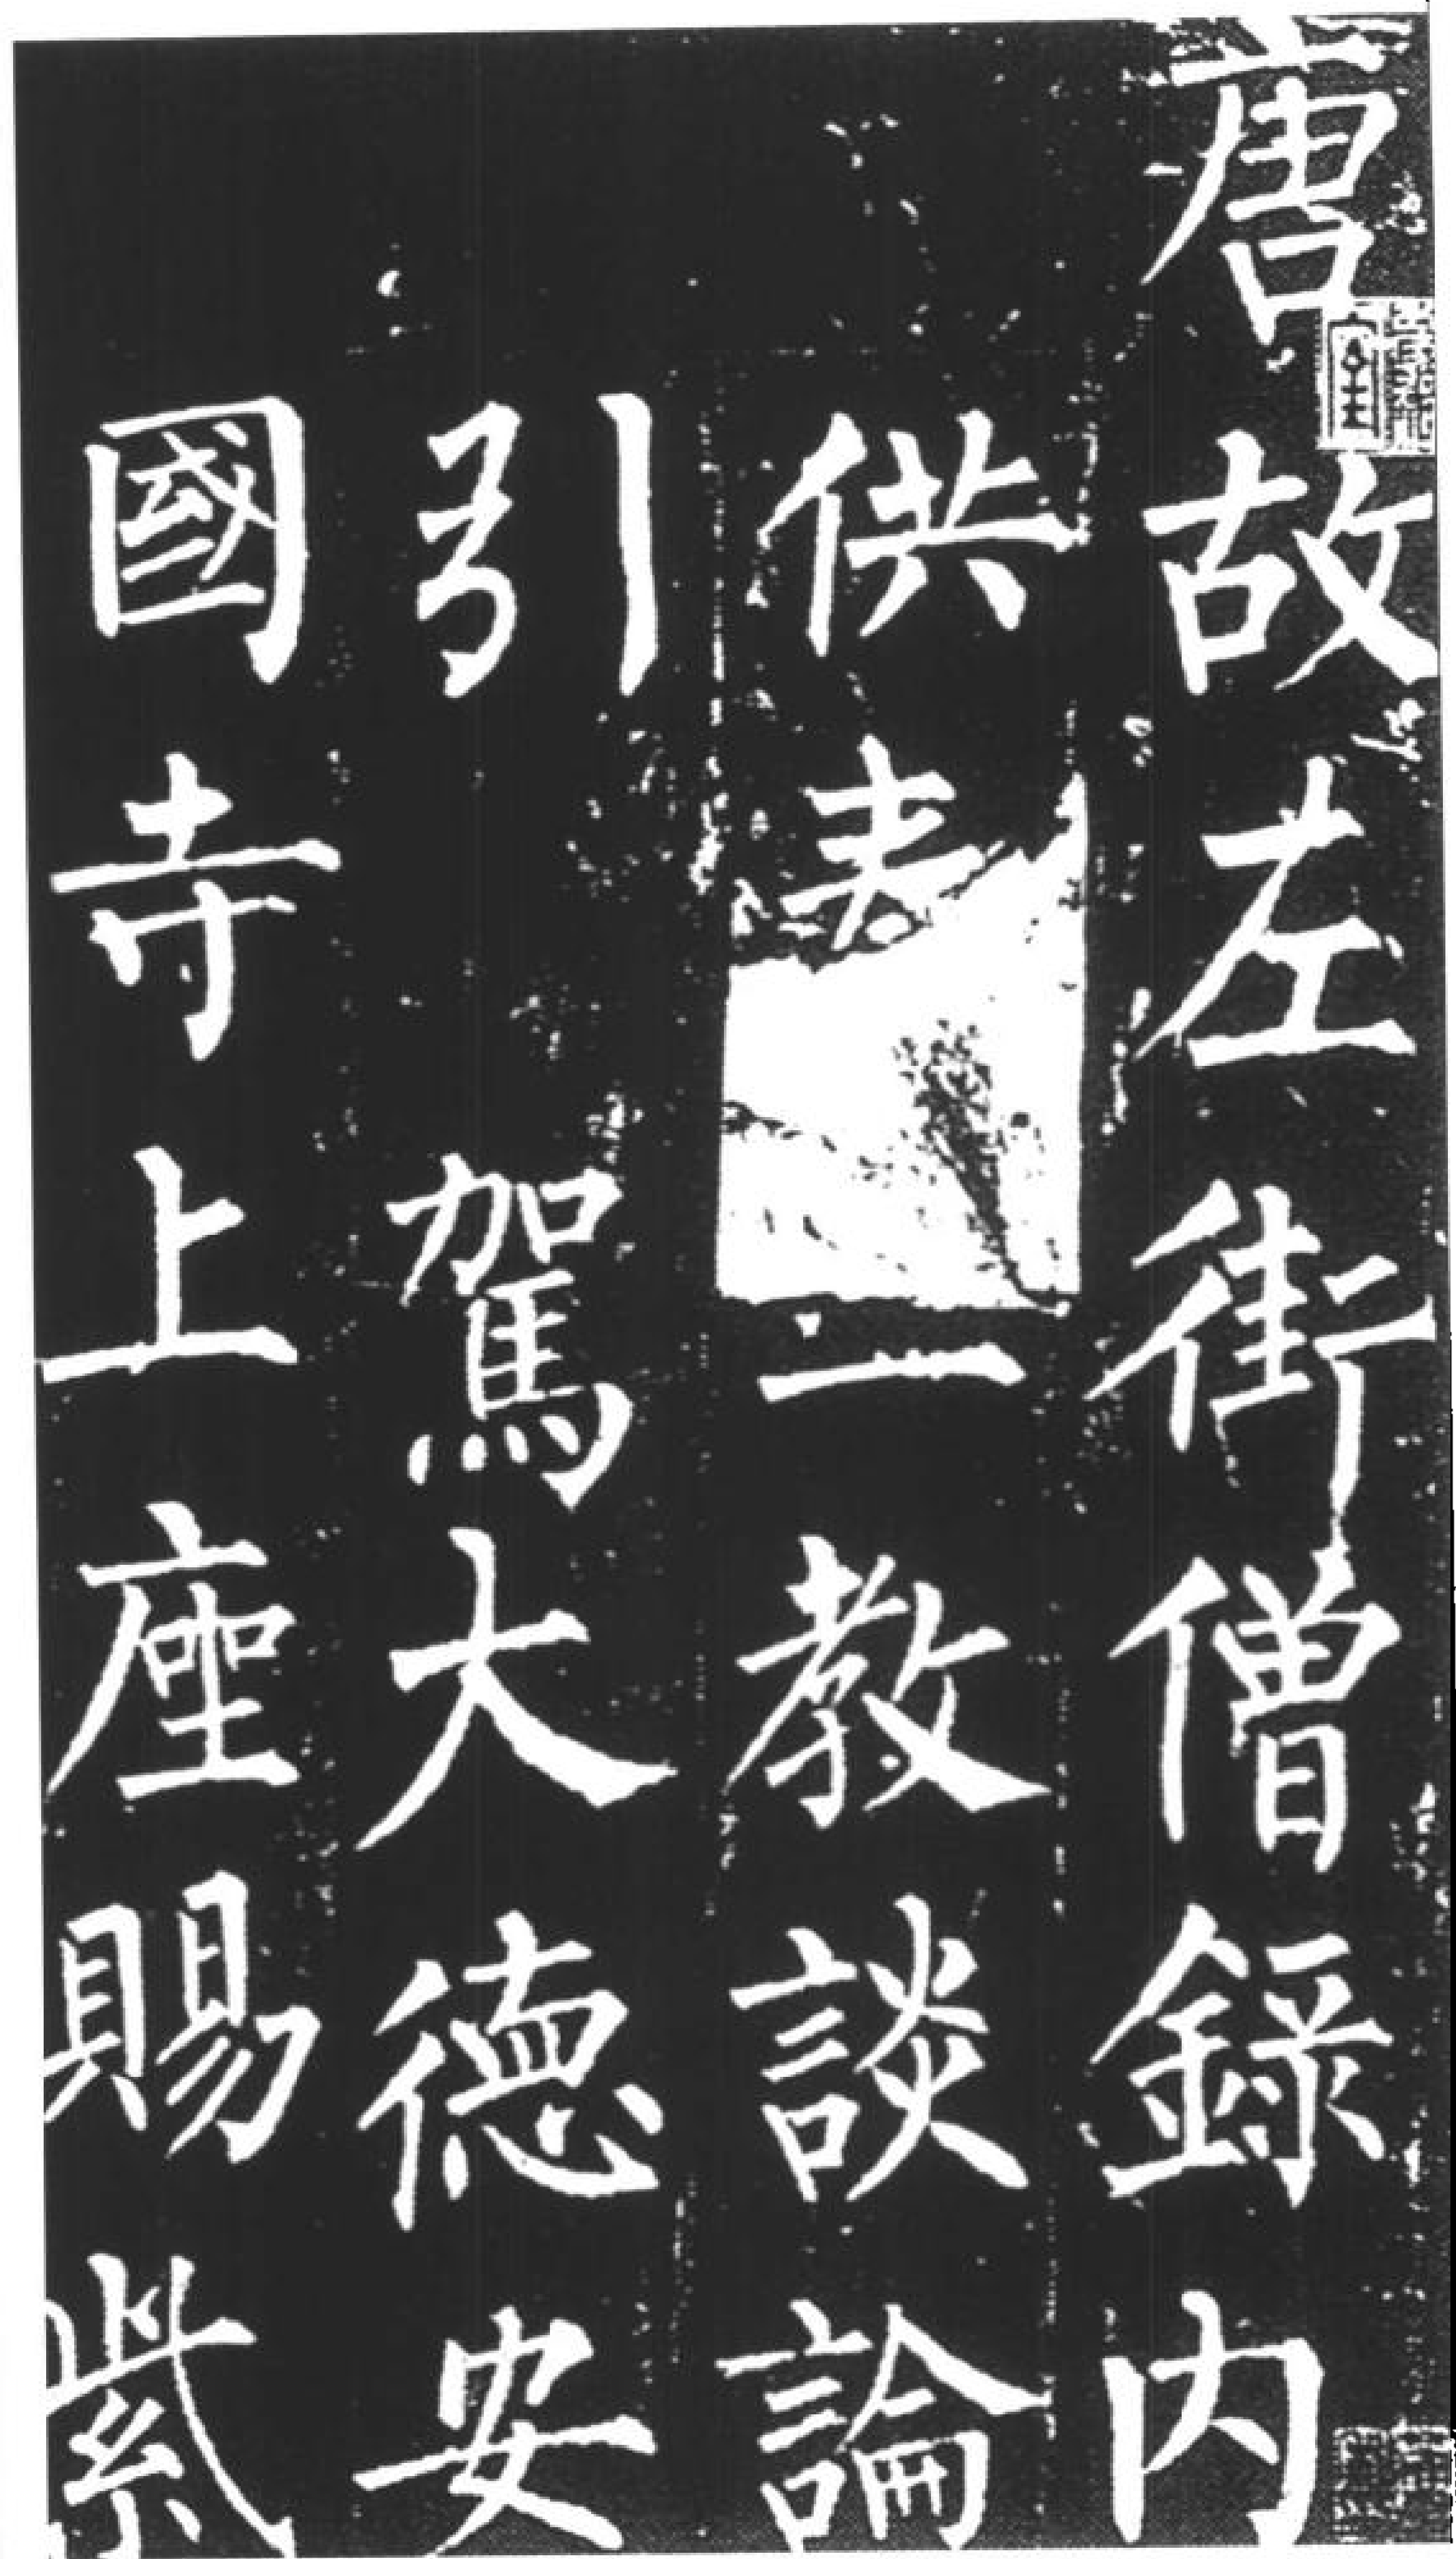 唐故左街僧錄內
供奉三教談論
引駕大德安
國寺上座賜紫